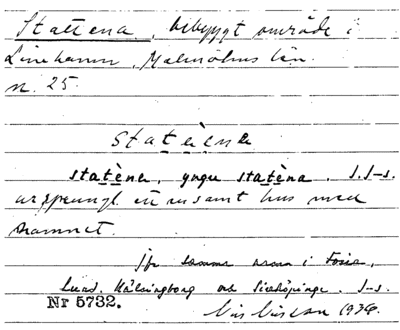 Stattena, bebyggt område i
Limhamn, Malmöhus län.
n. 25.
statèna
statèna, yngre statèna. S.J-s.
urspungl. ett ensamt hus med
namnet.
Jfr samma namn i
Lund, Hälsingborg och Linköping. J-s.
Nr 5732. 1936.